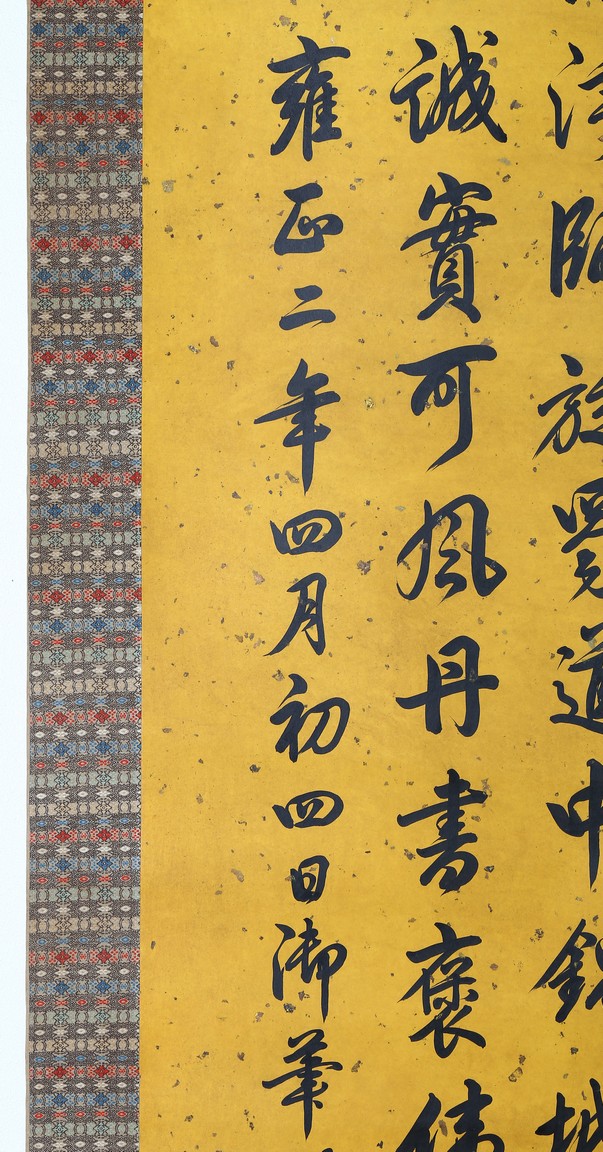 臨旋覺道中
誠實可風丹書褒
雍正二年四月初四日御筆